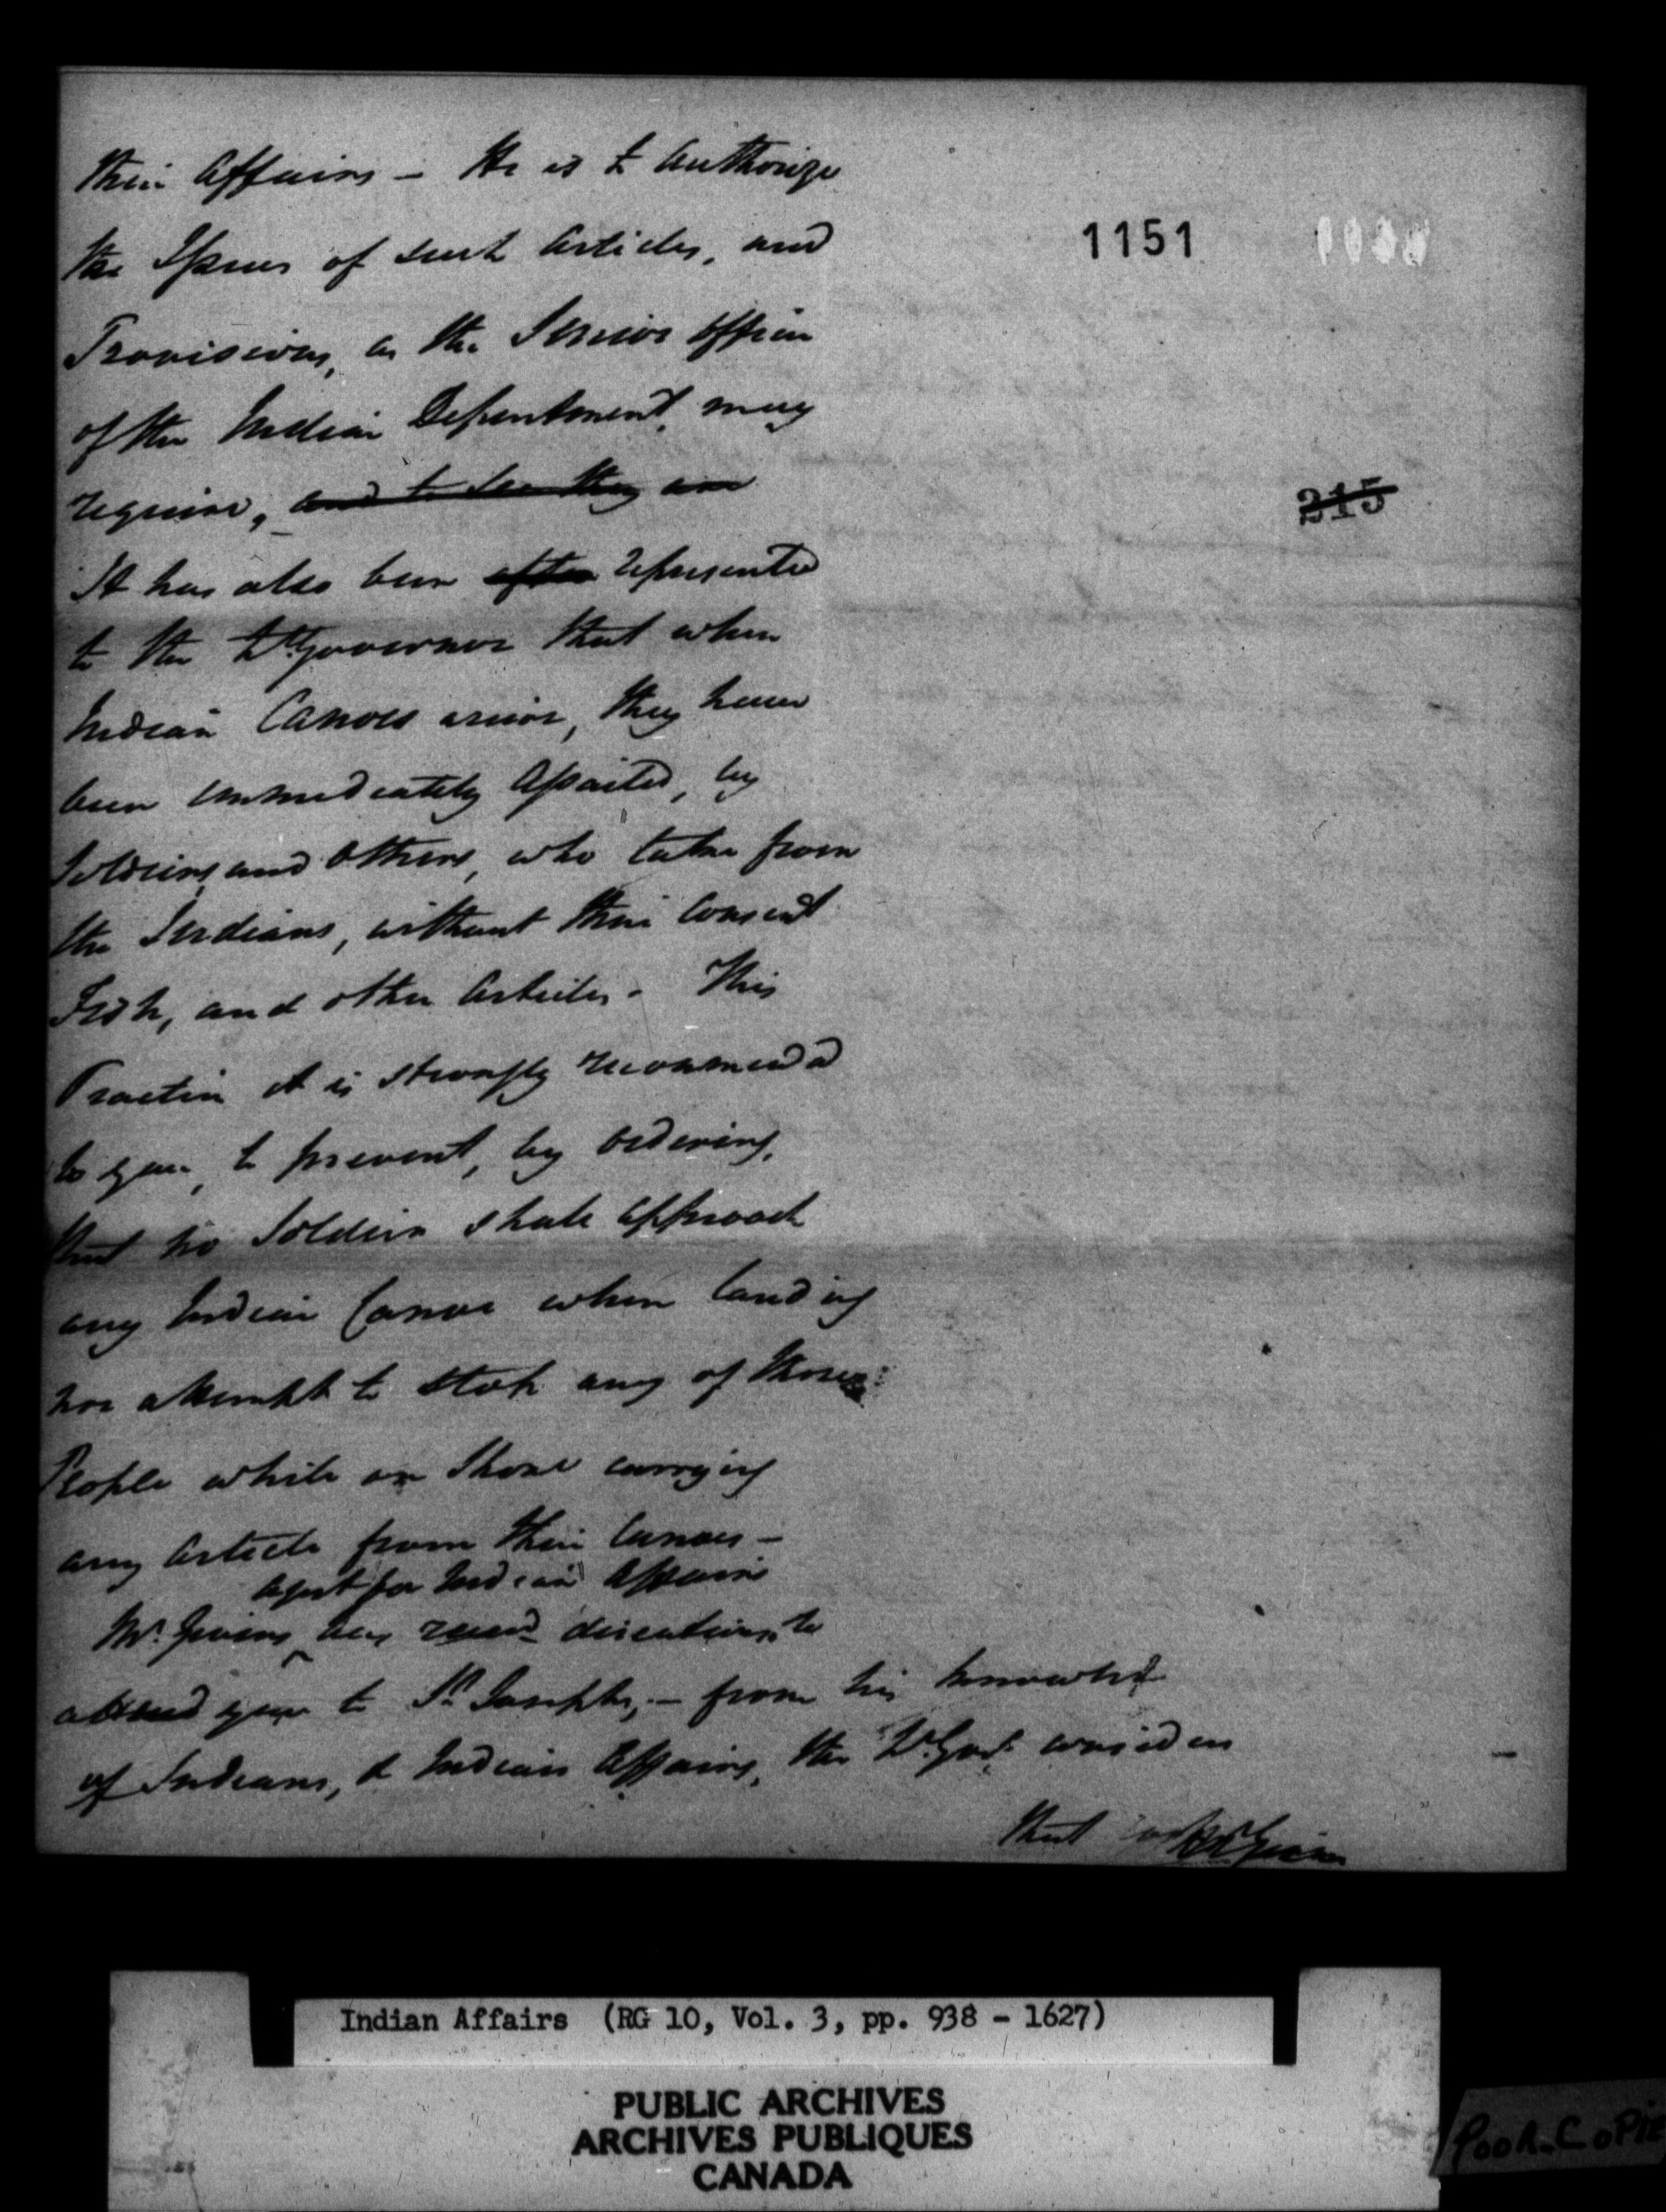 their Affairs – He is to Authorize
the Issues of such Articles, and
Provisions, as the Senior Officer
of the Indian Department, may
require, and to see they are
It has also been often represented
to the Lt Governor that when
Indian Canoes arrive, they have
been immediately Assailed, by
Soldiers, and Others, who take from
the Indians, without their Consent
Fish, and other Articles. This
Practice it is strongly recommended
to you, to prevent, by ordering,
that no Soldier shall approach
any Indian Canoe when landing
nor attempt to stop any of those
People while on Shore carrying
any Article from their Canoes –
Agent for Indian Affairs
Mr. Givins has recd directions to
attend you to St Josephs, – from his knowledge
of Indians, & Indian Affairs, the Lt. Govr. considers
that
1151
215
Indian Affairs (RG 10, Vol. 3, pp. 938 – 1627)
PUBLIC ARCHIVES
ARCHIVES PUBLIQUES
CANADA
Poor Copie